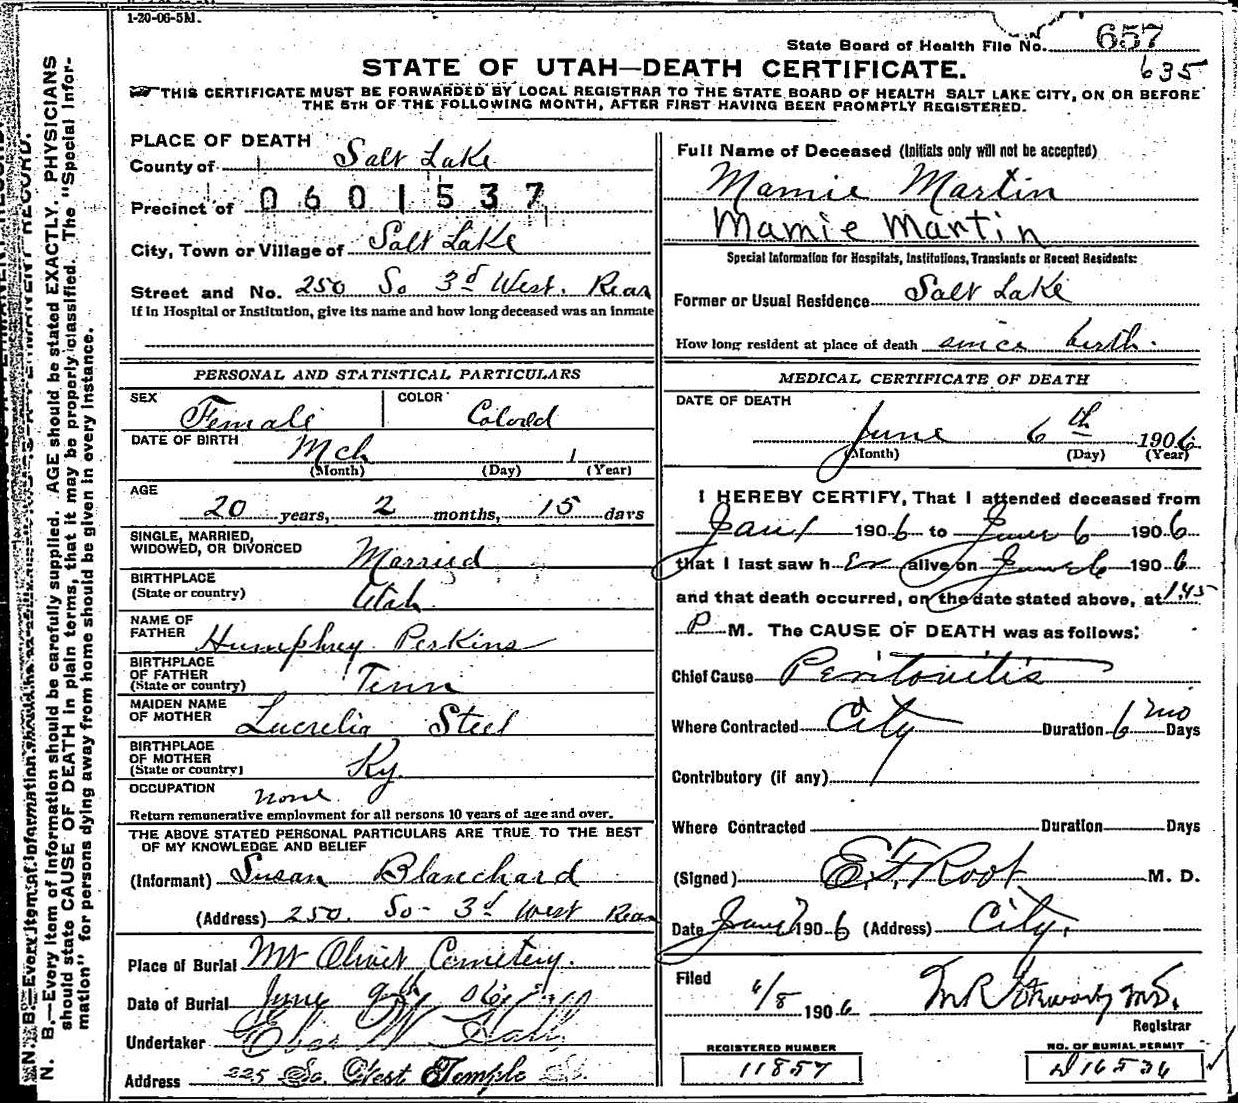 1-20-06-5M.
State Board of Health File No. 657
635
STATE OF UTAH—DEATH CERTIFICATE.
THIS CERTIFICATE MUST BE FORWARDED BY LOCAL REGISTRAR TO THE STATE BOARD OF HEALTH SALT LAKE CITY, ON OR BEFORE
THE 5TH OF THE FOLLOWING MONTH, AFTER FIRST HAVING BEEN PROMPTLY REGISTERED.
N. B.—Every item of information should be carefully supplied. AGE should be stated EXACTLY. PHYSICIANS
should state CAUSE OF DEATH in plain terms, that it may be properly classified. The "Special Infor-
mation" for persons dying away from home should be given in every instance.
PLACE OF DEATH
County of Salt Lake
Precinct of 0601537
City, Town or Village of Salt Lake
Street and No. 250 So 3d West. Rear
If in Hospital or Institution, give its name and how long deceased was an inmate
PERSONAL AND STATISTICAL PARTICULARS
SEX Female COLOR Colored
DATE OF BIRTH Mch 1
(Month) (Day) (Year)
AGE
20 years, 2 months, 15 days
SINGLE, MARRIED,
WIDOWED, OR DIVORCED Married
BIRTHPLACE
(State or country) Utah
NAME OF
FATHER Humphrey Perkins
BIRTHPLACE
OF FATHER
(State or country) Tenn
MAIDEN NAME
OF MOTHER Lucretia Steel
BIRTHPLACE
OF MOTHER
(State or country) Ky.
OCCUPATION none
Return remunerative employment for all persons 10 years of age and over.
THE ABOVE STATED PERSONAL PARTICULARS ARE TRUE TO THE BEST
OF MY KNOWLEDGE AND BELIEF
(Informant) Susan Blanchard
(Address) 250. So- 3d West Rear
Place of Burial Mt Olivet Cemetery.
Date of Burial June 9th
Undertaker Eber W Hall
Address 225 So. West Temple St.
Full Name of Deceased (Initials only will not be accepted)
Mamie Martin
Mamie Martin
Special Information for Hospitals, Institutions, Transients or Recent Residents:
Former or Usual Residence Salt Lake
How long resident at place of death since birth.
MEDICAL CERTIFICATE OF DEATH
DATE OF DEATH
June 6th 1906
(Month) (Day) (Year)
I HEREBY CERTIFY, That I attended deceased from
Jan 1 1906 to June 6 1906
that I last saw h er alive on June 6 1906
and that death occurred, on the date stated above, at 1.45
P M. The CAUSE OF DEATH was as follows:
Chief Cause Peritonitis
Where Contracted City Duration 6 mo Days
Contributory (if any)
Where Contracted Duration Days
(Signed) E. F. Root M. D.
Date June 7 1906 (Address) City.
Filed 6/8 1906
Registrar
REGISTERED NUMBER
11857
NO. OF BURIAL PERMIT